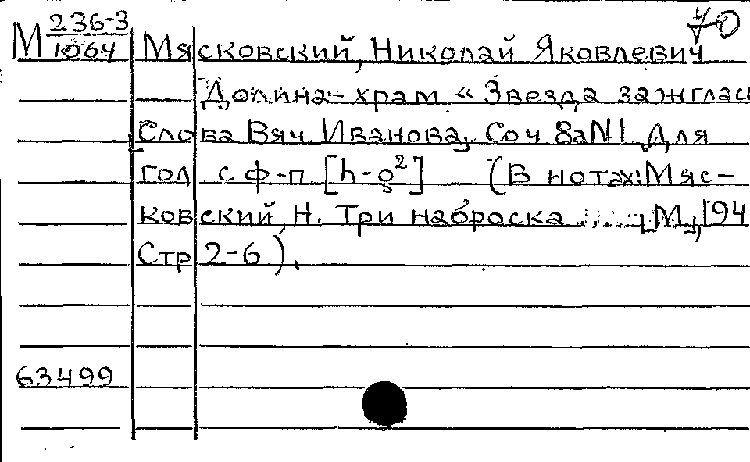 70
М 236-3/1064 Мясковский, Николай Яковлевич
Долина-храм „Звезда зажглас
[Слова Вяч Иванова, Соч 8aN1. Для
гол с ф-п [h-g²] (В нотах: Мяс-
ковский Н. Три наброска ..., М., 194
Стр 2-6).
63499